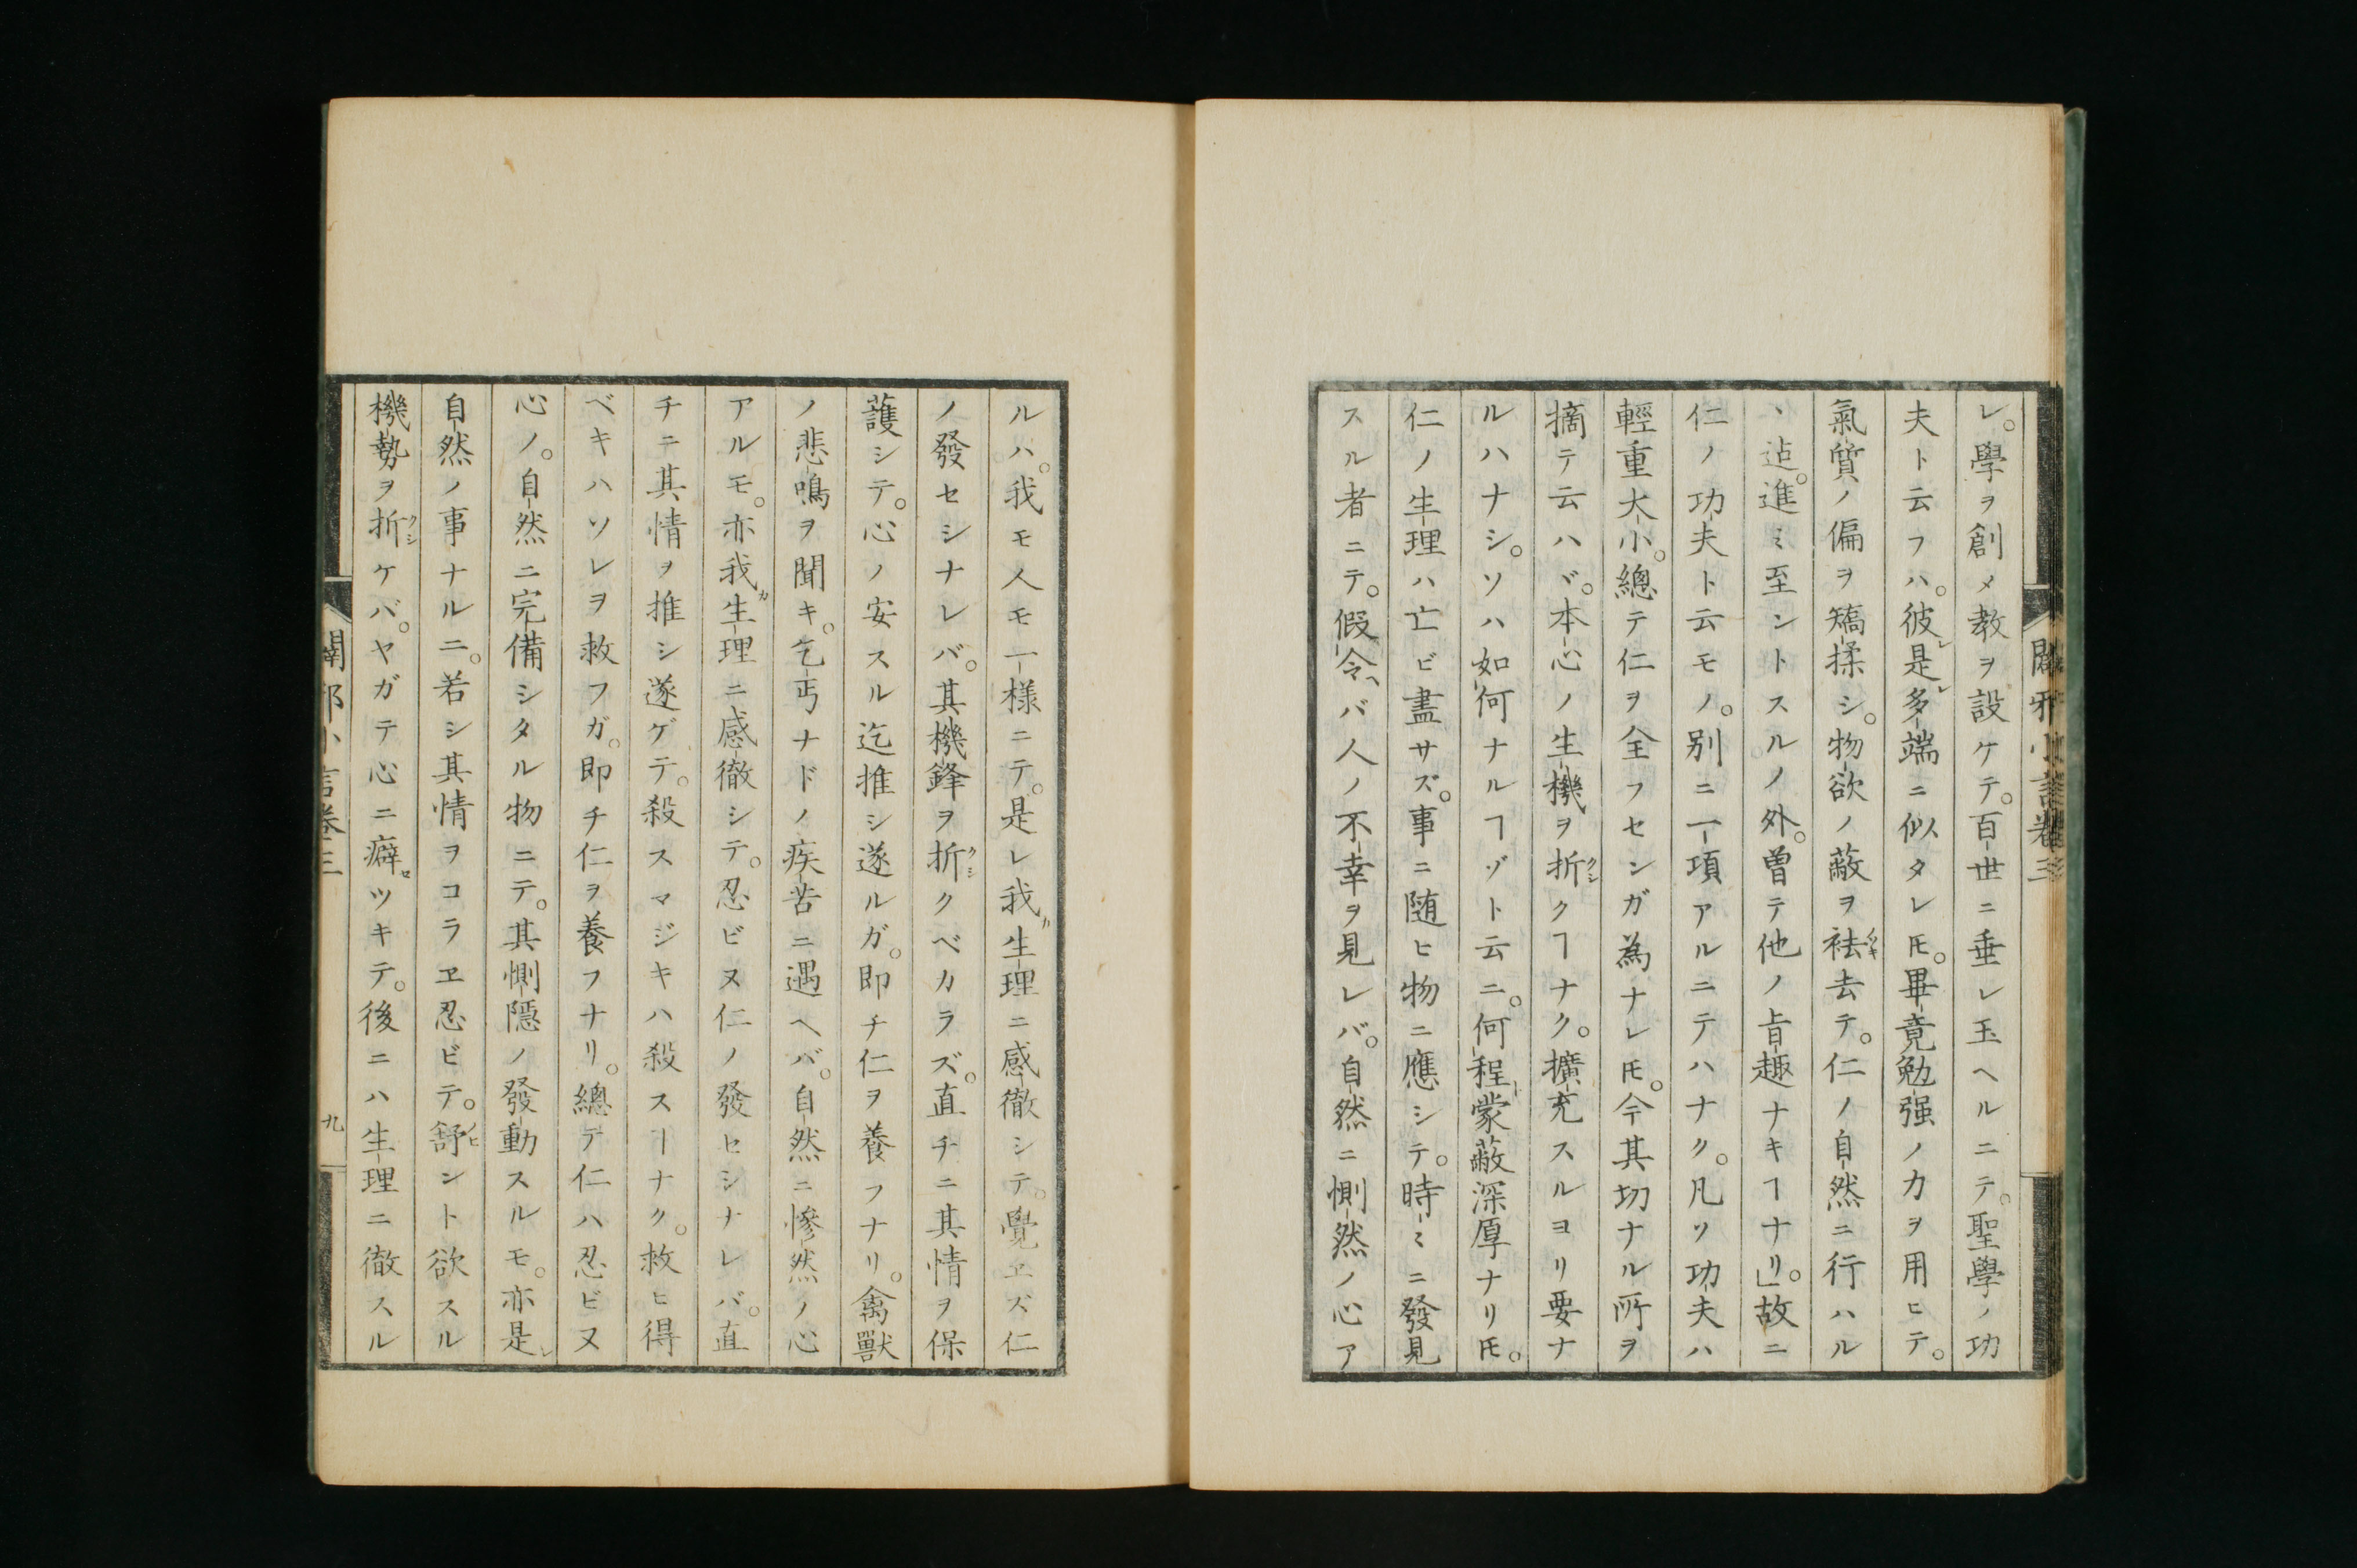 闢邪小言卷三
レ。學ヲ創メ教ヲ設ケテ。百世ニ垂レ玉ヘルニテ。聖學ノ功
夫ト云フハ。彼是多端ニ似タレ𪜈。畢竟勉强ノ力ヲ用ヒテ。
氣質ノ偏ヲ矯揉シ。物欲ノ蔽ヲ袪去テ。仁ノ自然ニ行ハル
丶迠。進ミ至ントスルノ外。曽テ他ノ旨趣ナキヿナリ。」故ニ
仁ノ功夫ト云モノ。別ニ一項アルニテハナク。凡ソ功夫ハ
輕重大小。總テ仁ヲ全フセンガ為ナレ𪜈。今其切ナル所ヲ
摘テ云ハヾ。本心ノ生機ヲ折クヿナク。擴充スルヨリ要ナ
ルハナシ。ソハ如何ナルヿゾト云ニ。何程蒙蔽深厚ナリ𪜈。
仁ノ生理ハ亡ビ盡サズ。事ニ随ヒ物ニ應シテ。時ミニ發見
スル者ニテ。假令バ人ノ不幸ヲ見レバ。自然ニ惻然ノ心ア
ルハ。我モ人モ一様ニテ。是レ我生理ニ感徹シテ。覺エズ仁
ノ發セシナレバ。其機鋒ヲ折クベカラズ。直チニ其情ヲ保
護シテ。心ノ安スル迄推シ遂ルガ。即チ仁ヲ養フナリ。禽獸
ノ悲鳴ヲ聞キ。乞丐ナドノ疾苦ニ遇ヘバ。自然ニ惨然ノ心
アルモ。亦我生理ニ感徹シテ。忍ビヌ仁ノ發セシナレバ。直
チニ其情ヲ推シ遂ゲテ。殺スマジキハ殺スヿナク。救ヒ得
ベキハソレヲ救フガ。即チ仁ヲ養フナリ。總テ仁ハ忍ビヌ
心ノ。自然ニ完備シタル物ニテ。其惻隱ノ發動スルモ。亦是
自然ノ事ナルニ。若シ其情ヲコラヱ忍ビテ。舒ント欲スル
機勢ヲ折ケバ。ヤガテ心ニ癖ツキテ。後ニハ生理ニ徹スル
闢邪小言卷三
九